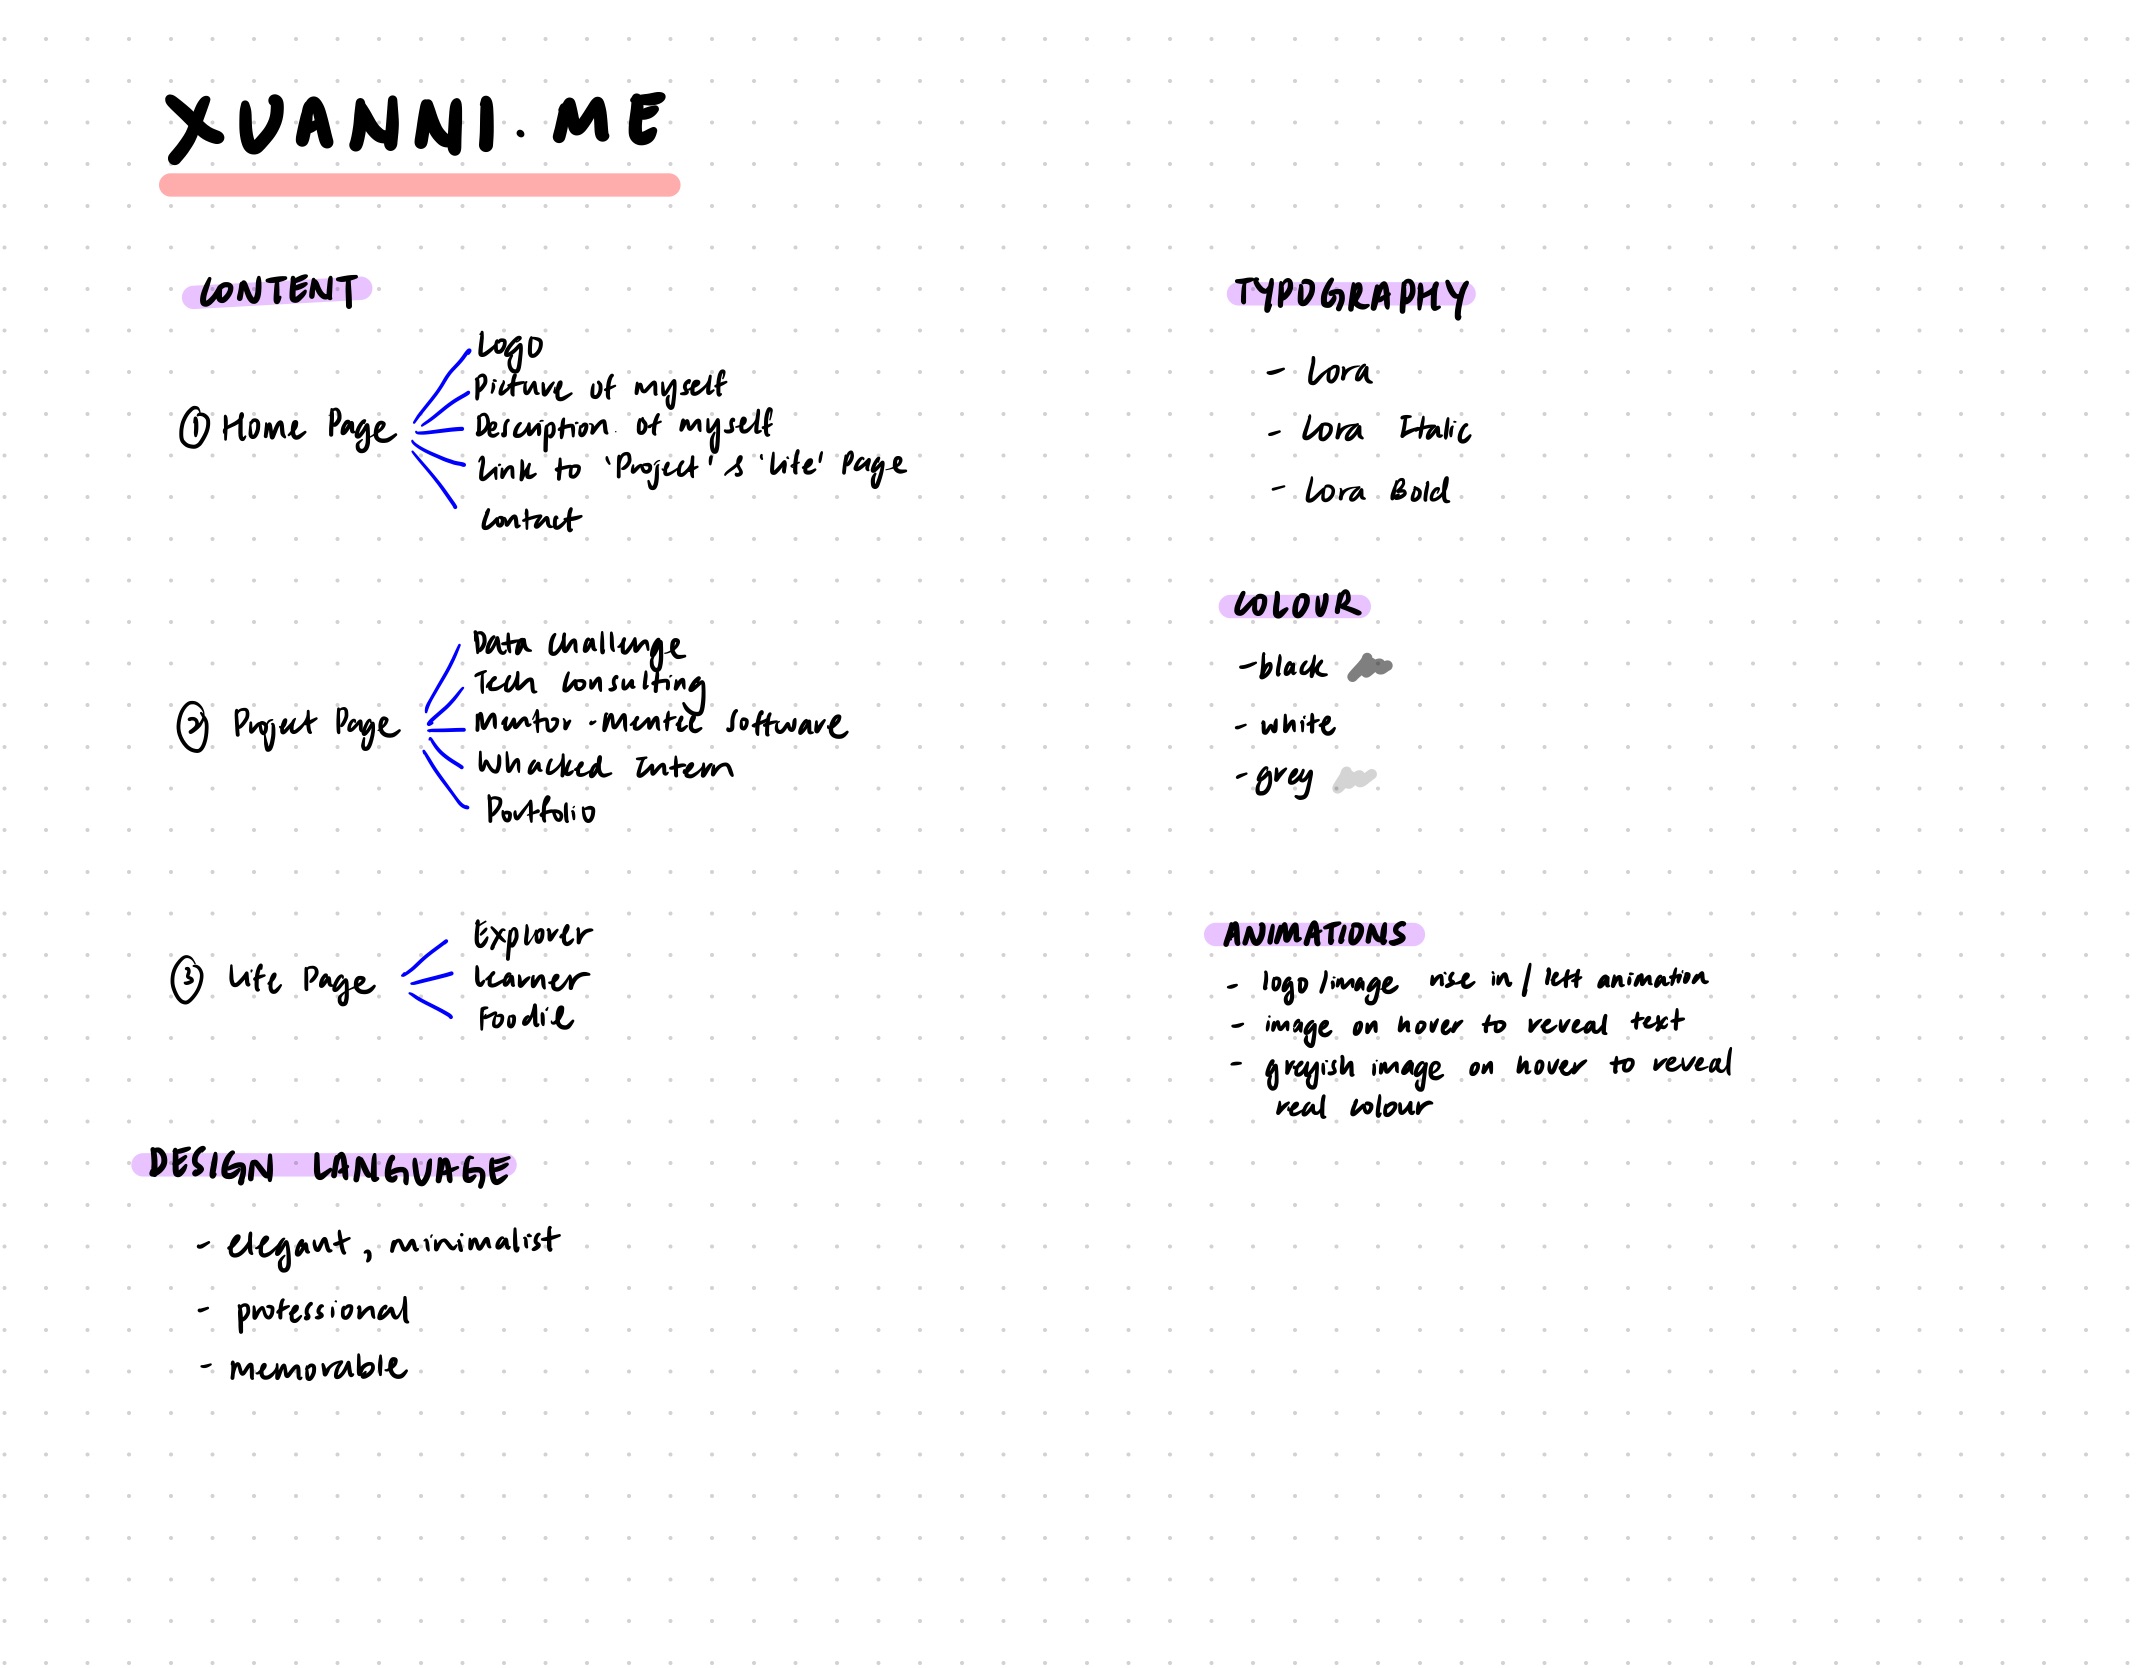 XUANNI.ME
CONTENT
① Home Page
Logo
Picture of myself
Description of myself
Link to 'Project' & 'Life' Page
Contact
② Project Page
Data Challenge
Tech Consulting
Mentor-Mentee Software
Whacked Intern
Portfolio
③ Life Page
Explorer
Learner
Foodie
DESIGN LANGUAGE
- elegant, minimalist
- professional
- memorable
TYPOGRAPHY
- Lora
- Lora Italic
- Lora Bold
COLOUR
- black
- white
- grey
ANIMATIONS
- logo/image rise in/left animation
- image on hover to reveal text
- greyish image on hover to reveal
real colour